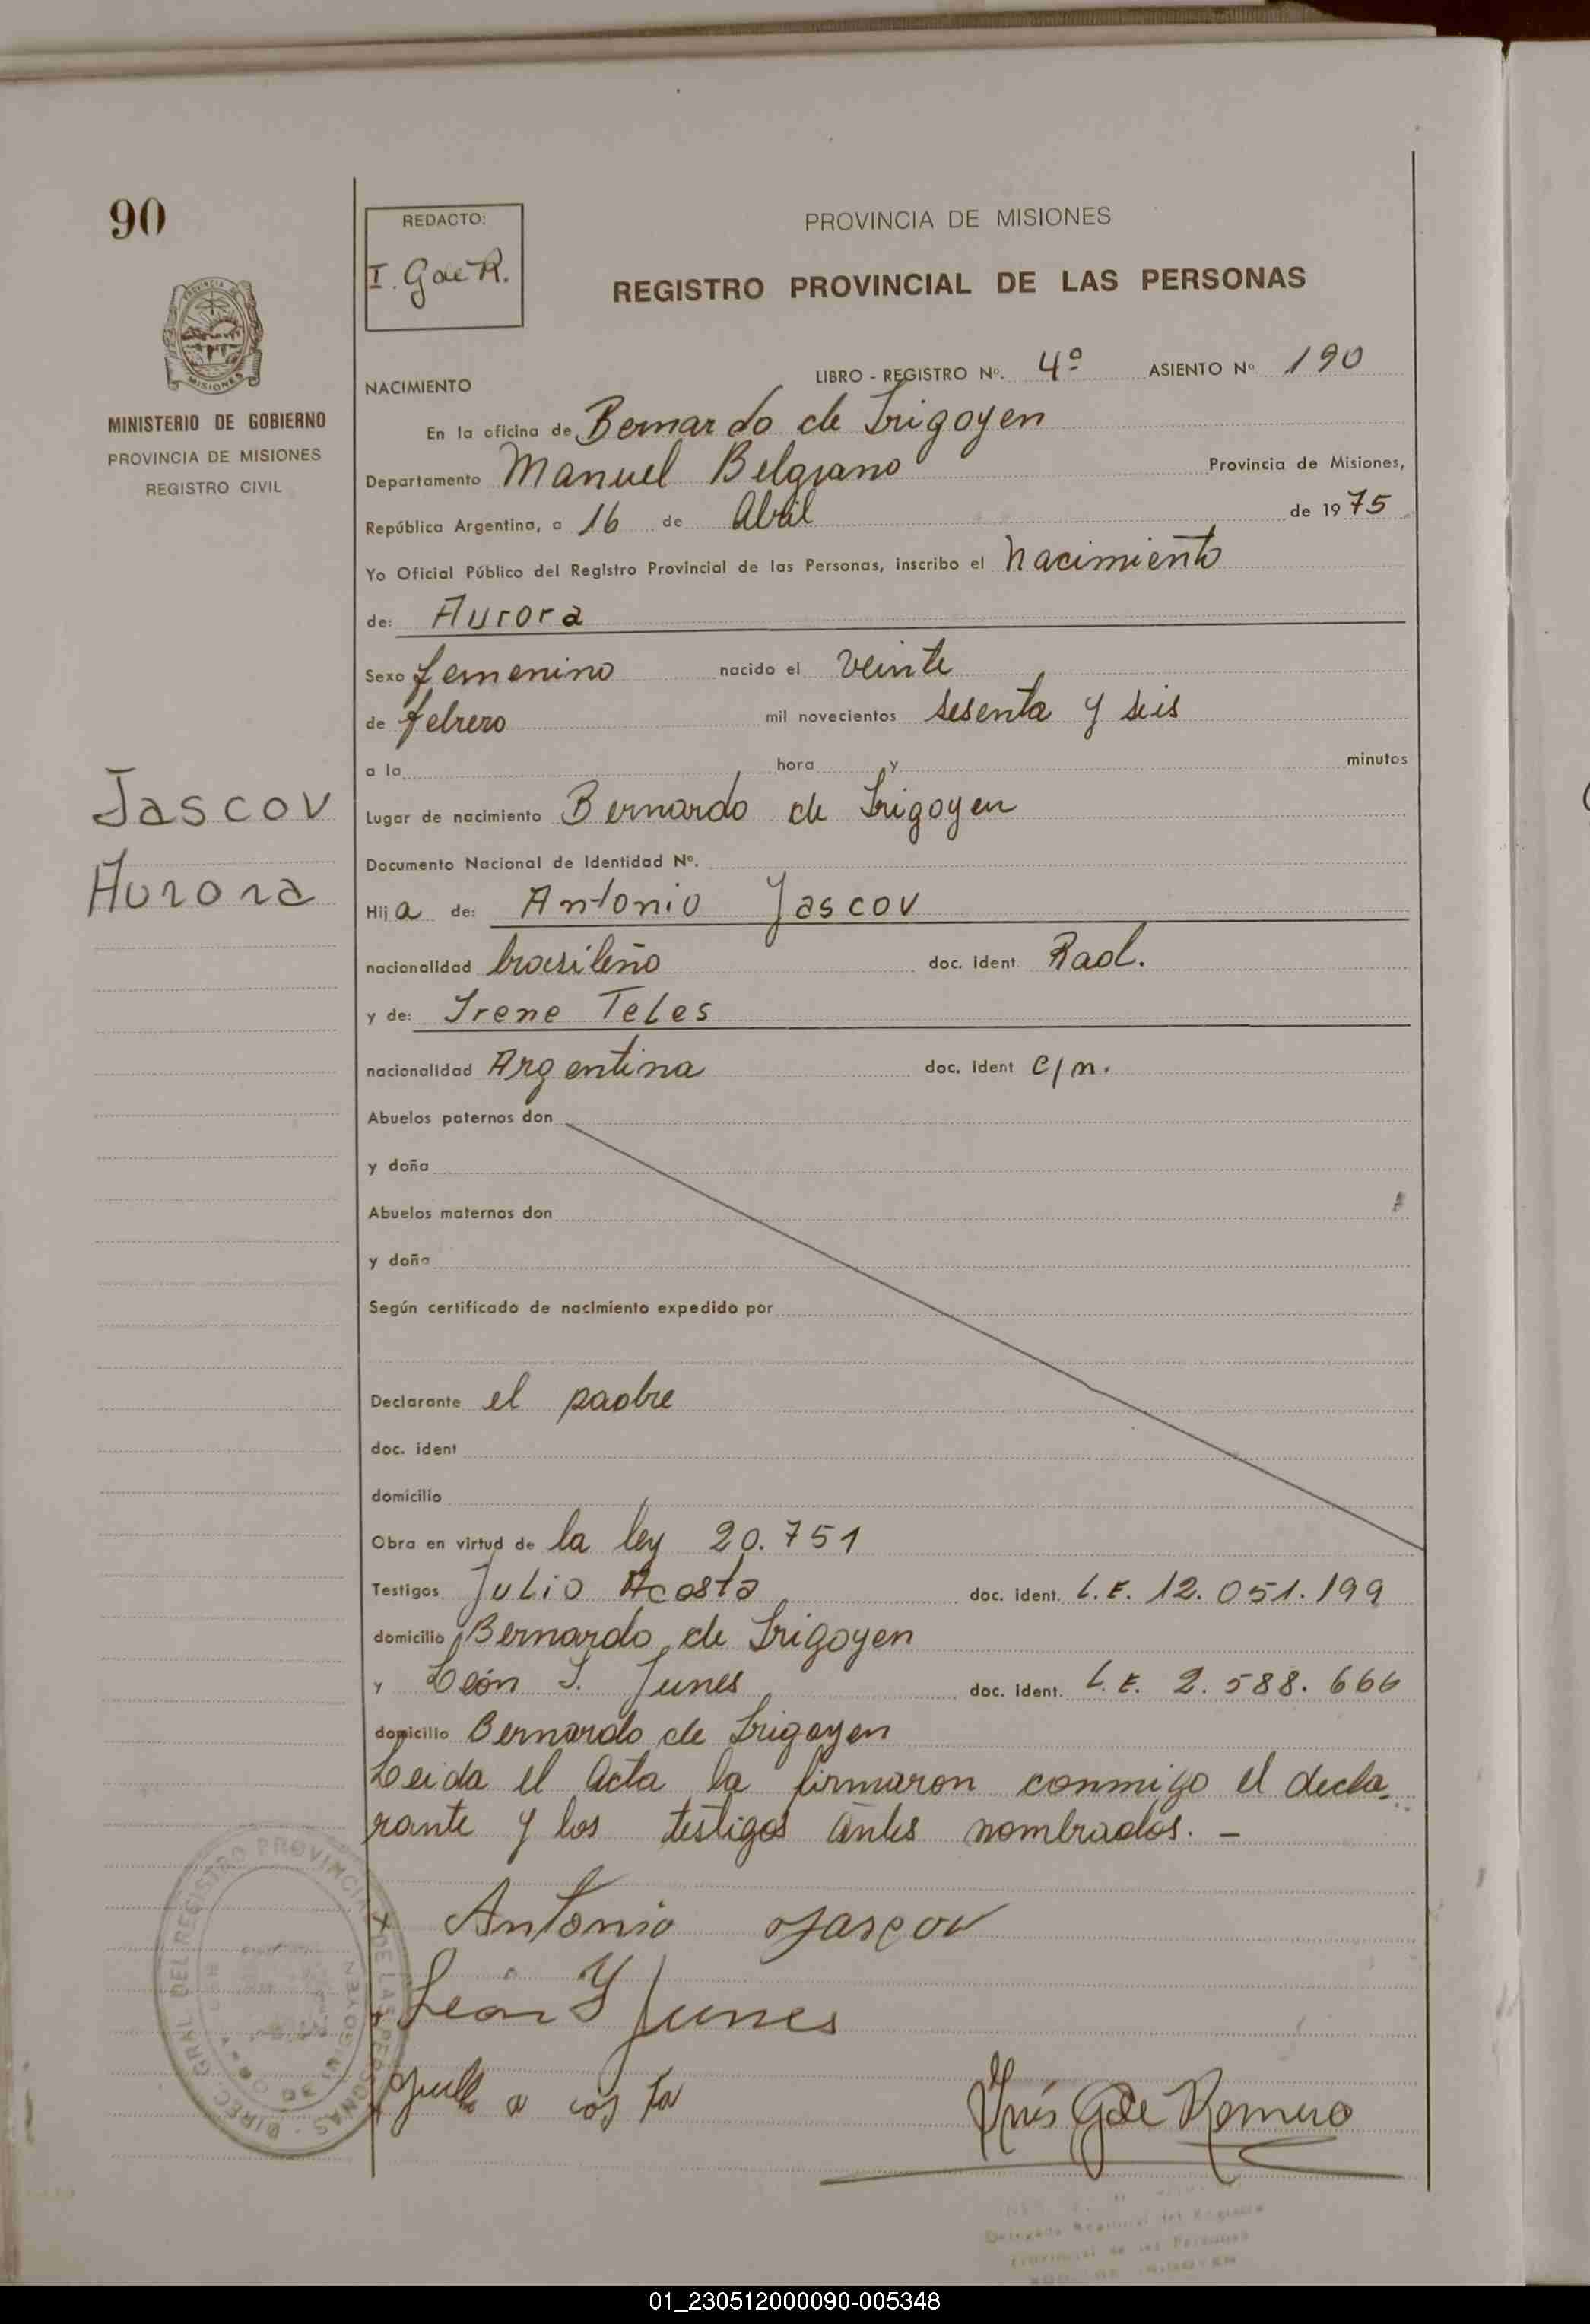 90
REDACTO:
I. G de R.
PROVINCIA DE MISIONES
REGISTRO PROVINCIAL DE LAS PERSONAS
MISIONES
MINISTERIO DE GOBIERNO
PROVINCIA DE MISIONES
REGISTRO CIVIL
NACIMIENTO LIBRO - REGISTRO Nº. 4º ASIENTO Nº 190
En la oficina de Bernardo de Irigoyen
Departamento Manuel Belgrano Provincia de Misiones,
República Argentina, a 16 de Abril de 1975
Yo Oficial Público del Registro Provincial de las Personas, inscribo el Nacimiento
de: Aurora
Sexo femenino nacido el veinte
de febrero mil novecientos sesenta y seis
a la hora y minutos
Jascov
Aurora
Lugar de nacimiento Bernardo de Irigoyen
Documento Nacional de Identidad Nº.
Hija de: Antonio Jascov
nacionalidad brasileño doc. ident. Rad.
y de: Irene Teles
nacionalidad Argentina doc. ident c/n.
Abuelos paternos don
y doña
Abuelos maternos don
y doña
Según certificado de nacimiento expedido por
Declarante el padre
doc. ident
domicilio
Obra en virtud de la ley 20.751
Testigos Julio Acosta doc. ident. L.E. 12.051.199
domicilio Bernardo de Irigoyen
y León I. Junes doc. ident. L.E. 2.588.666
domicilio Bernardo de Irigoyen
Leida el Acta la firmaron conmigo el decla-
rante y los testigos antes nombrados. -
Antonio Jascov
León Y Junes
a cos ta
Inés G de Romero
DIREC. GRAL DEL REGISTRO PROVINCIAL DE LAS PERSONAS
Delegada Regional del Registro
Provincial de las Personas
01_230512000090-005348